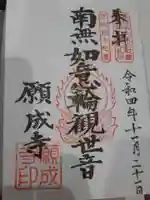 奉拝
令和四年十一月二十一日
南無如意輪観世音
願成寺
願成寺印